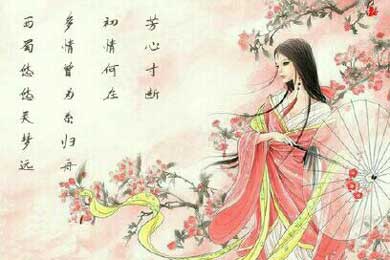 芳心寸断
初情何在
多情曾为系归舟
西蜀悠悠梦远